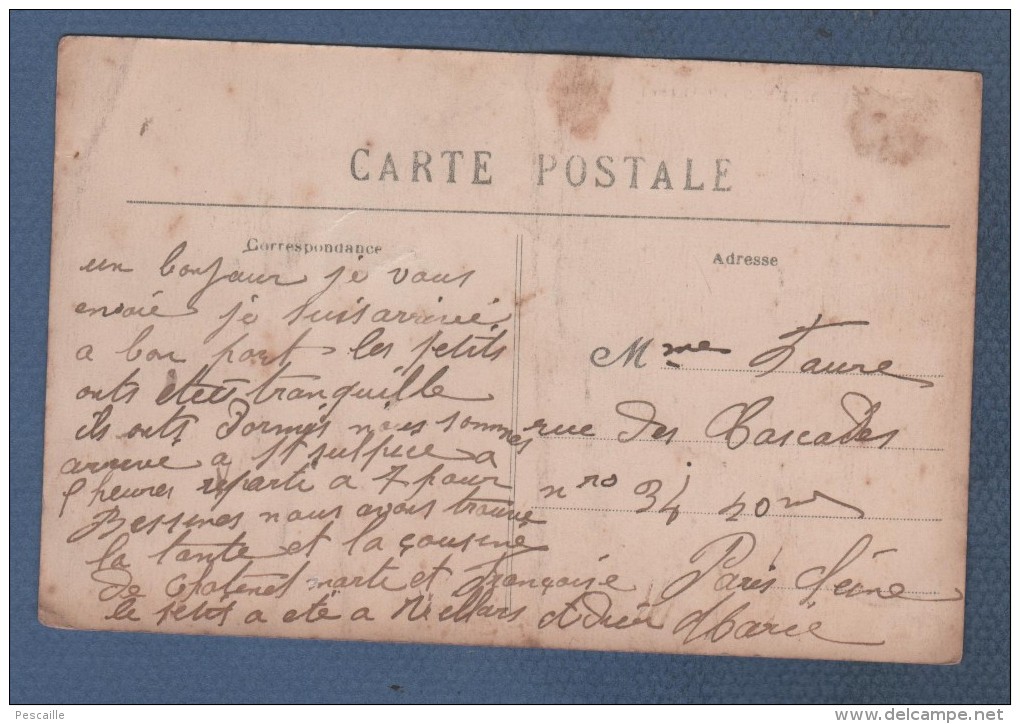 CARTE POSTALE
Correspondance
un bonjour je vous
envoie je suis arrivé
a bon port les petits
onts etes tranquille
ils onts Dormis nous sommes
arrivé a St sulpice a
heures reparti a 7 pour
Bessines nous avons trouve
la tante et la cousine
De et françoise
le petit a eté a Adieu Marie
Adresse
Mme Faure
rue des Cascades
nro 34 20m
Paris Seine
Pescaille
www.delcampe.net